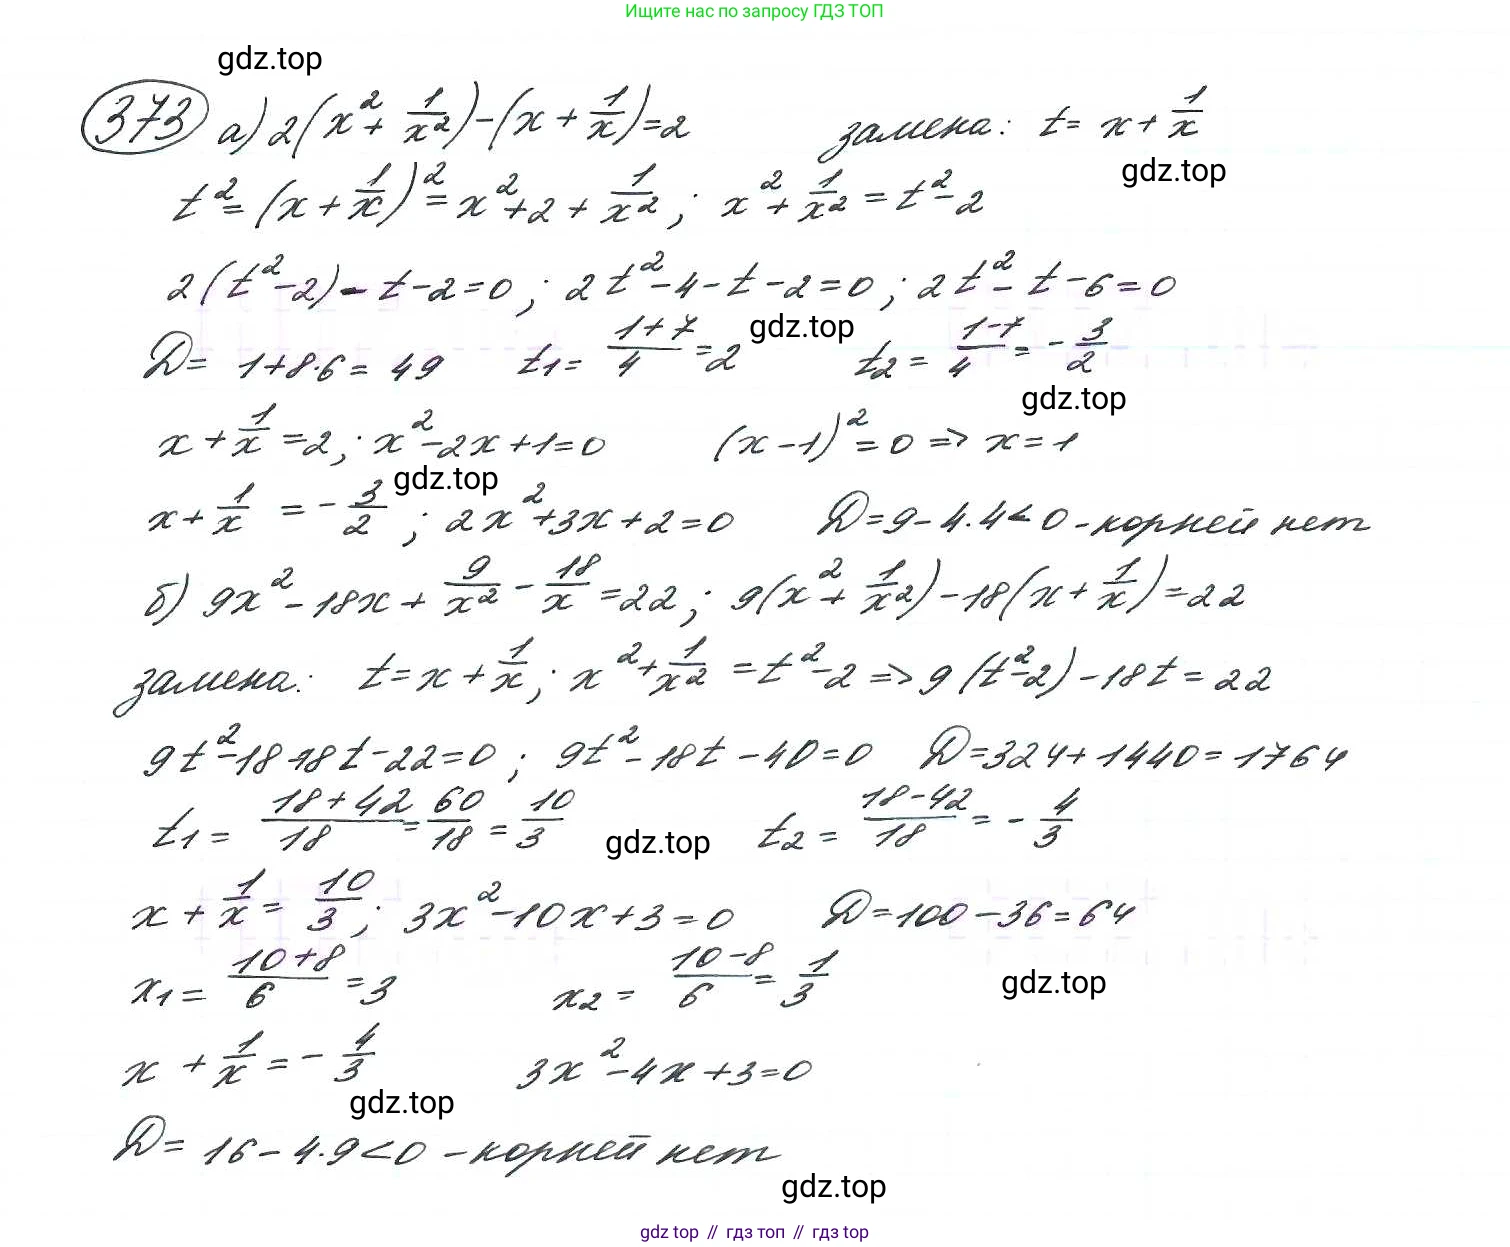 Ищите нас по запросу ГДЗ ТОП
gdz.top
373 а) 2(x² + 1/x²) - (x + 1/x) = 2 замена: t = x + 1/x
gdz.top
t² = (x + 1/x)² = x² + 2 + 1/x²; x² + 1/x² = t² - 2
2(t² - 2) - t - 2 = 0; 2t² - 4 - t - 2 = 0; 2t² - t - 6 = 0
gdz.top
D = 1 + 8·6 = 49 t₁ = (1+7)/4 = 2 t₂ = (1-7)/4 = -3/2
gdz.top
x + 1/x = 2; x² - 2x + 1 = 0 (x - 1)² = 0 => x = 1
gdz.top
x + 1/x = -3/2; 2x² + 3x + 2 = 0 D = 9 - 4·4 < 0 - корней нет
б) 9x² - 18x + 9/x² - 18/x = 22; 9(x² + 1/x²) - 18(x + 1/x) = 22
замена: t = x + 1/x; x² + 1/x² = t² - 2 => 9(t² - 2) - 18t = 22
9t² - 18 - 18t - 22 = 0; 9t² - 18t - 40 = 0 D = 324 + 1440 = 1764
t₁ = (18+42)/18 = 60/18 = 10/3 gdz.top t₂ = (18-42)/18 = -4/3
x + 1/x = 10/3; 3x² - 10x + 3 = 0 D = 100 - 36 = 64
x₁ = (10+8)/6 = 3 x₂ = (10-8)/6 = 1/3 gdz.top
x + 1/x = -4/3 3x² - 4x + 3 = 0
gdz.top
D = 16 - 4·9 < 0 - корней нет
gdz.top
gdz top // гдз топ // гдз top